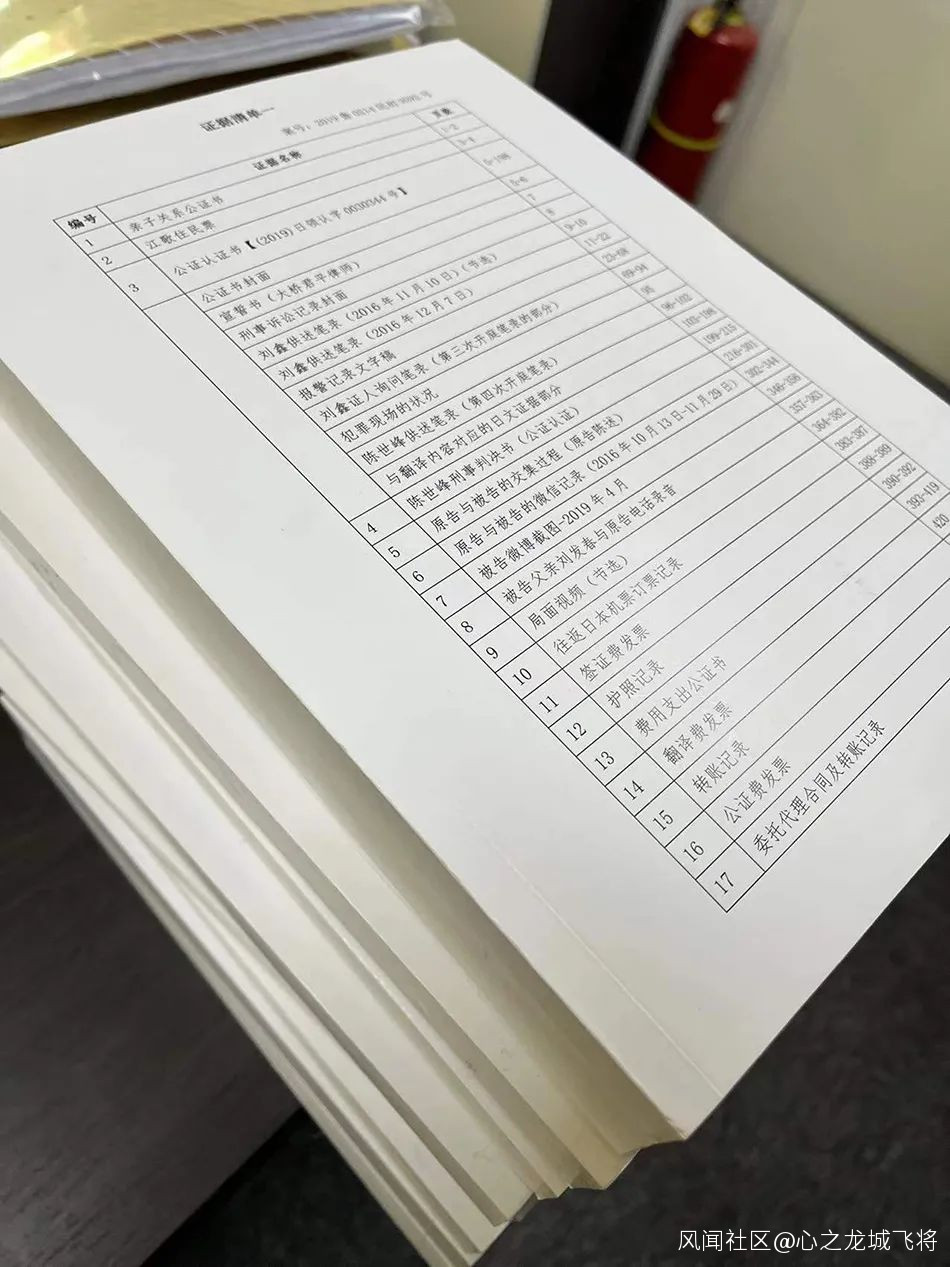 证据清单一
编号 证据名称 页数
1 亲子关系公证书 1-2
2 江歌住民票 3-4
3 公证认证书【(2019)日领认字0030344号】 5-198
公证书封面 5-6
宣誓书（大桥君平律师） 7
刑事诉讼记录封面 8
刘鑫供述笔录（2016年11月10日）（节选） 9-10
刘鑫供述笔录（2016年12月7日） 11-22
报警记录文字稿 23-68
刘鑫证人询问笔录（第三次开庭笔录的部分） 69-94
犯罪现场的状况 95
陈世峰供述笔录（第四次开庭笔录） 96-102
与翻译内容对应的日文证据部分 103-198
4 陈世峰刑事判决书（公证认证） 199-215
5 原告与被告的交集过程（原告陈述） 216-301
6 原告与被告的微信记录（2016年10月13日-11月29日） 302-344
7 被告微博截图-2019年4月
8 被告父亲刘发春与原告电话录音 357-363
9 局面视频（节选） 364-382
10 往返日本机票订票记录 383-387
11 签证费发票 388-389
12 护照记录 390-392
13 费用支出公证书 393-419
14 翻译费发票 420
15 转账记录
16 公证费发票
17 委托代理合同及转账记录
风闻社区@心之龙城飞将